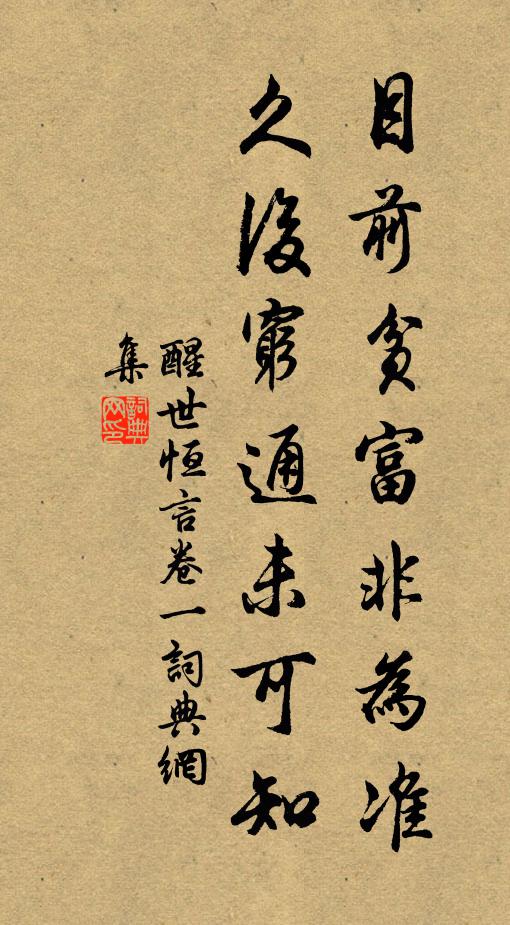 目前貧富非為准
久後窮通未可知
醒世恒言卷一詞典網
集
詞典網印